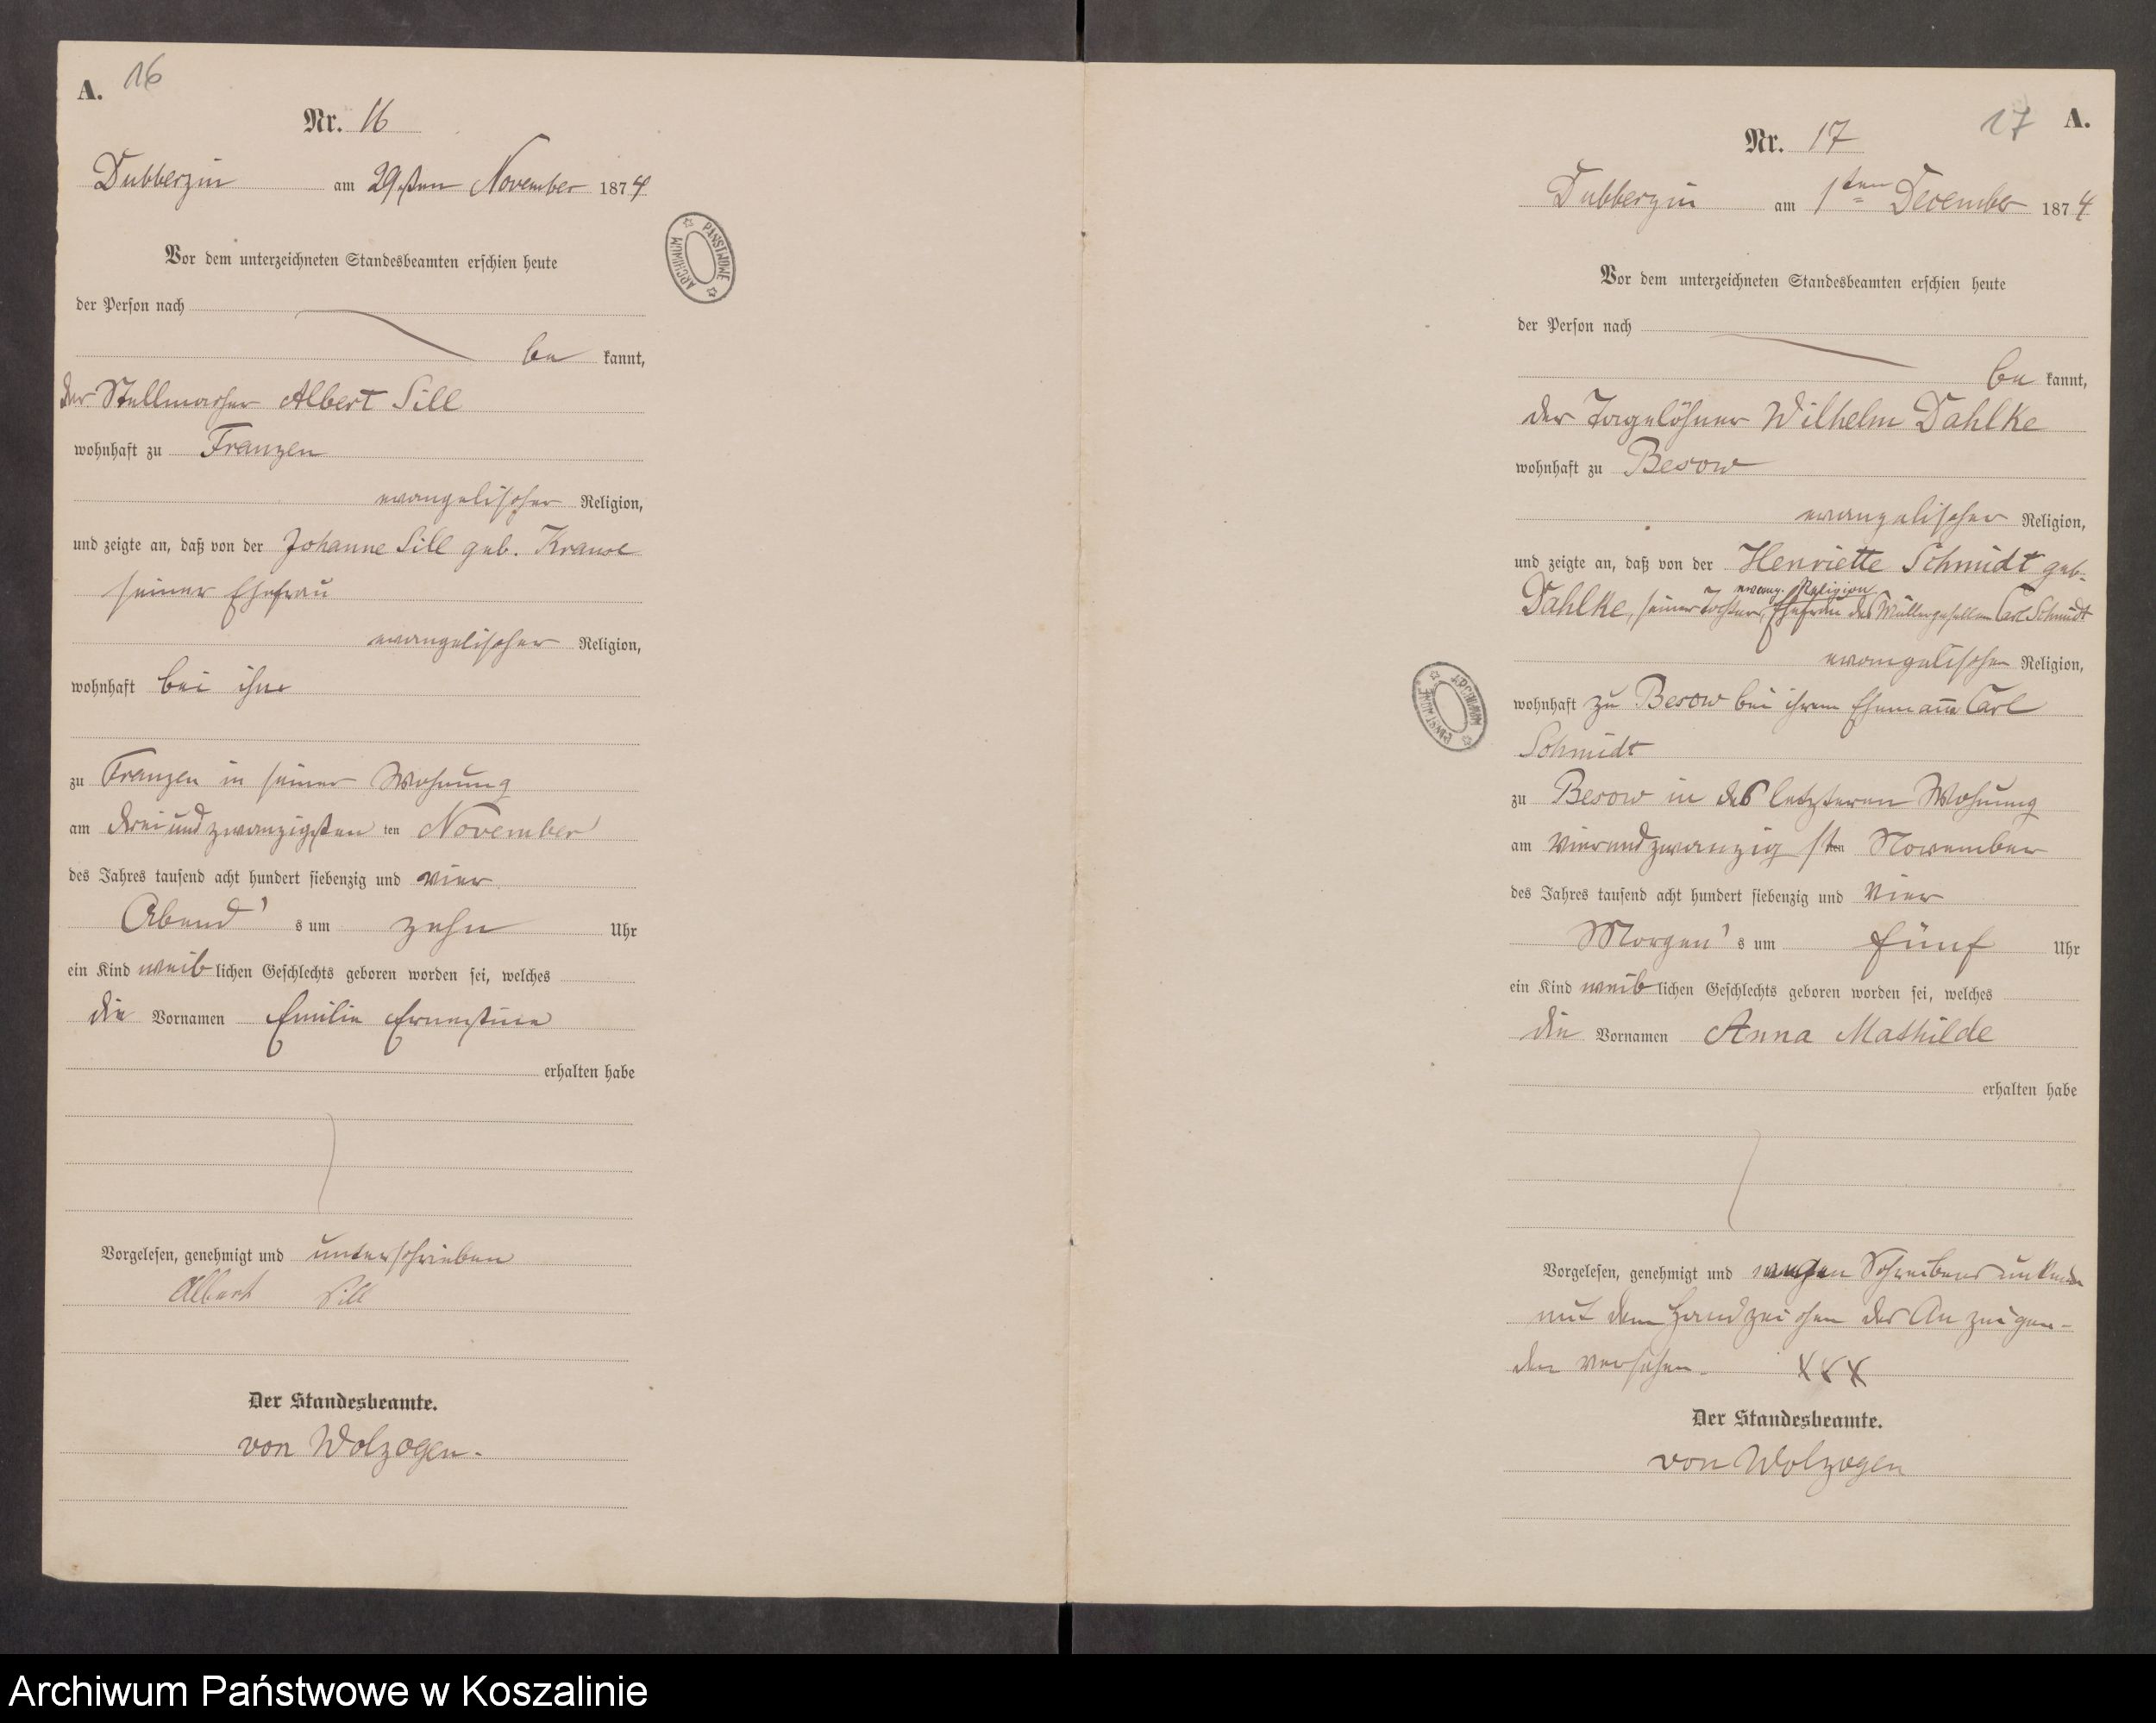 A. 16
Nr. 16
Dubberzin am 29sten November 1874
Vor dem unterzeichneten Standesbeamten erschien heute
der Person nach
be kannt,
der Stellmacher Albert Sill
wohnhaft zu Franzen
evangelischer Religion,
und zeigte an, daß von der Johanne Sill geb. Krause
seiner Ehefrau
evangelischer Religion,
wohnhaft bei ihm
zu Franzen in seiner Wohnung
am dreiundzwanzigsten ten November
des Jahres tausend acht hundert siebenzig und vier
Abend's um zehn Uhr
ein Kind weiblichen Geschlechts geboren worden sei, welches
die Vornamen Emilie Ernestine
erhalten habe
Vorgelesen, genehmigt und unterschrieben
Albert Sill
Der Standesbeamte.
von Wolzogen.
ARCHIWUM PAŃSTWOWE
17 A.
Nr. 17
Dubberzin am 1ten December 1874
Vor dem unterzeichneten Standesbeamten erschien heute
der Person nach
be kannt,
der Tagelöhner Wilhelm Dahlke
wohnhaft zu Besow
evangelischer Religion,
und zeigte an, daß von der Henriette Schmidt geb.
evang. Religion
Dahlke, seiner Tochter, Ehefrau des Müllergesellen Carl Schmidt
evangelischer Religion,
wohnhaft zu Besow bei ihrem Ehemann Carl
Schmidt
zu Besow in des letzteren Wohnung
am vierundzwanzig sten November
des Jahres tausend acht hundert siebenzig und vier
Morgen's um fünf Uhr
ein Kind weiblichen Geschlechts geboren worden sei, welches
die Vornamen Anna Mathilde
erhalten habe
Vorgelesen, genehmigt und wegen Schreibens unkunde
mit dem Handzeichen des Anzeigen-
den versehen. XXX
Der Standesbeamte.
von Wolzogen
ARCHIWUM PAŃSTWOWE
Archiwum Państwowe w Koszalinie